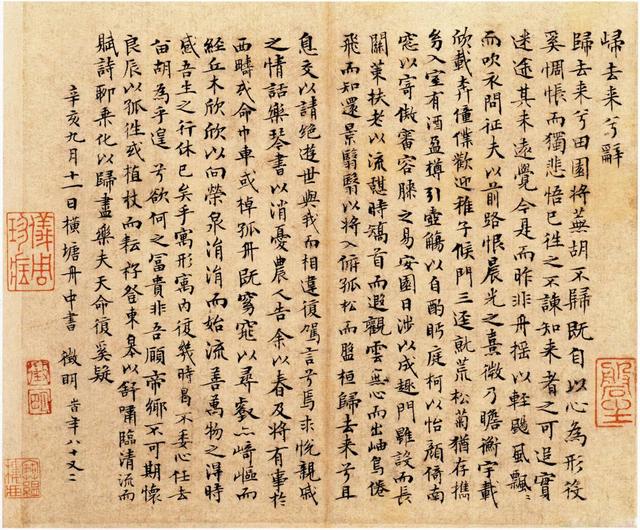 歸去来兮辭
歸去来兮田園将蕪胡不歸既自以心為形役
奚惆悵而獨悲悟已往之不諫知来者之可追實
迷途其未遠覺今是而昨非舟摇以輕颺風飄〻
而吹衣問征夫以前路恨晨光之熹微乃瞻衡宇載
欣載奔僮僕歡迎稚子候門三迳就荒松菊猶存携
幼入室有酒盈樽引壺觴以自酌眄庭柯以怡顔倚南
窓以寄傲審容膝之易安園日涉以成趣門雖設而長
關策扶老以流憩時矯首而遐觀雲無心而出岫鳥倦
飛而知還景翳翳以将入俯孤松而盤桓歸去来兮且
息交以請絶遊世與我而相違復駕言兮焉求悦親戚
之情話樂琴書以消憂農人告余以春及将有事於
西疇或命巾車或棹孤舟既窈窕以尋壑亦崎嶇而
經丘木欣欣以向榮泉涓涓而始流善萬物之得時
感吾生之行休已矣乎寓形寓内復幾時曷不委心任去
留胡為乎遑兮欲何之冨貴非吾願帝鄉不可期懷
良辰以孤往或植杖而耘耔登東皋以舒嘯臨清流而
賦詩聊乘化以歸盡樂夫天命復奚疑
辛亥九月十一日横塘舟中書 徵明 時年八十又二
儀周珍蔵
徵明